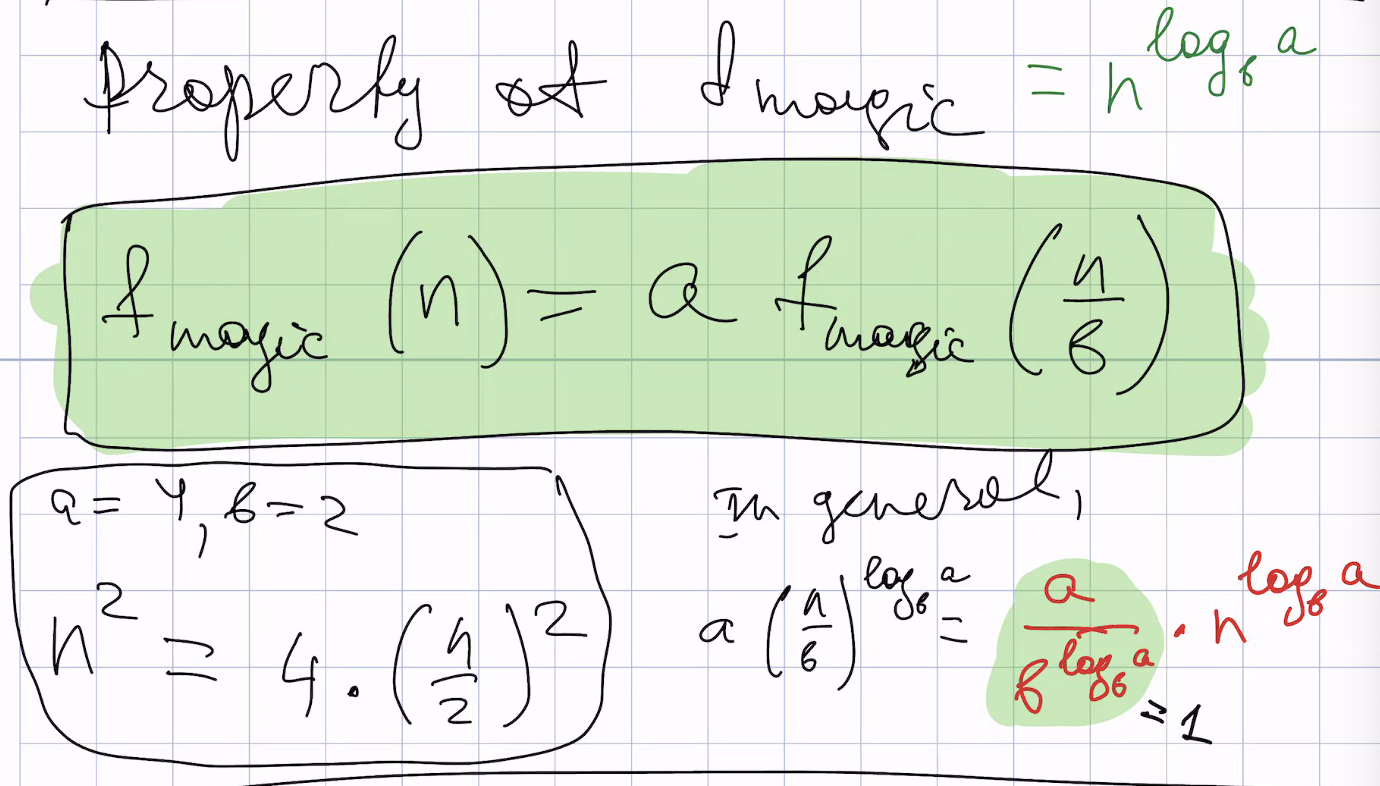 Property of f_magic = n^(log_b a)
f_magic (n) = a f_magic (n/b)
a = 4, b = 2
n^2 = 4 · (n/2)^2
In general,
a (n/b)^(log_b a) = a / b^(log_b a) · n^(log_b a)
= 1